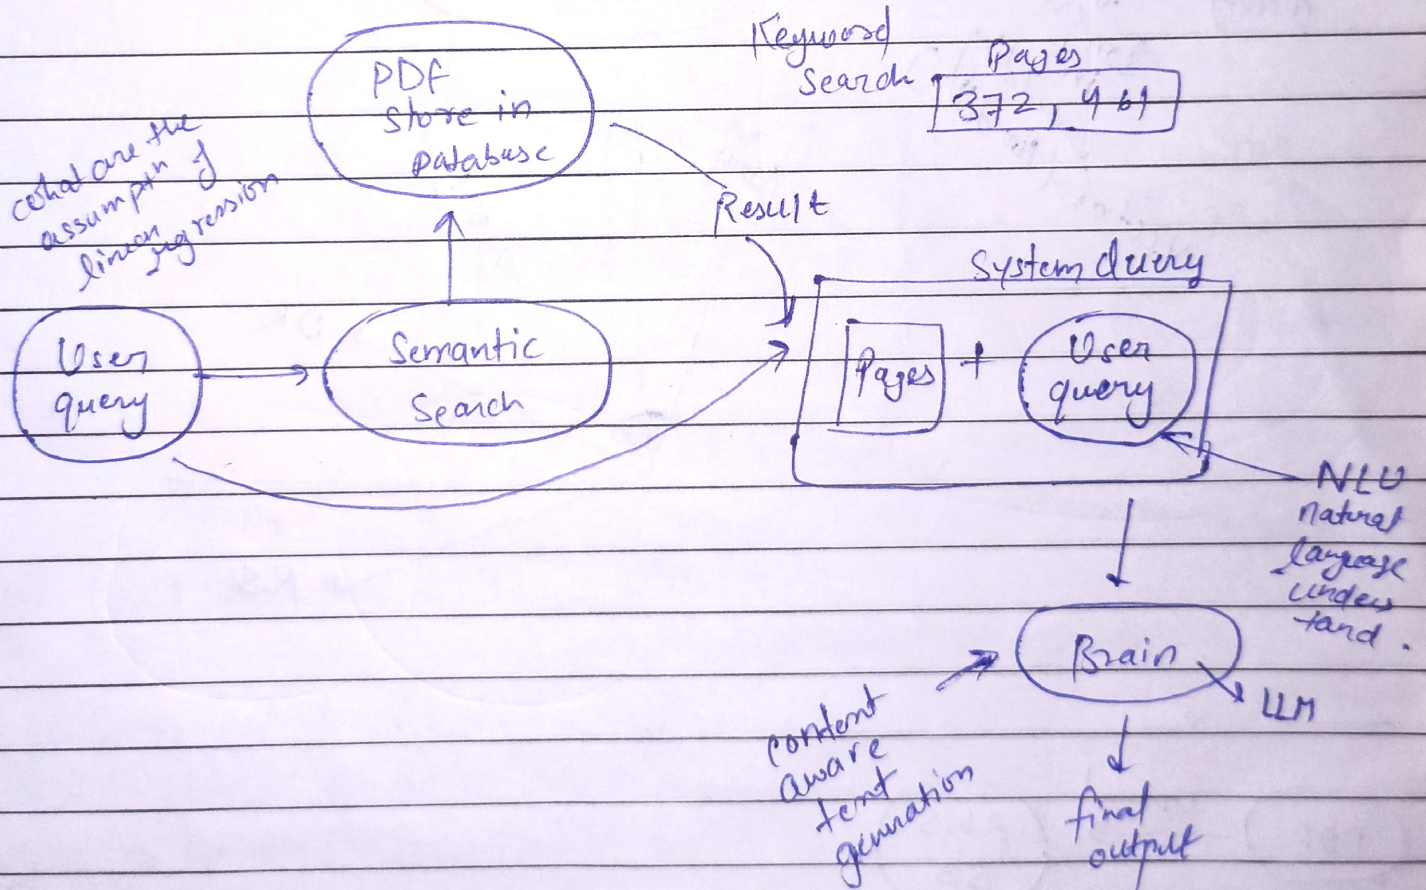 Keyword
Search
Pages
372, 461
PDF
store in
Database
what are the
assumptn of
linear
regression
Result
System Query
User
query
Semantic
Search
Pages
+
User
query
NLU
natural
language
unders
tand.
Brain
LLM
context
aware
text
generation
final
output